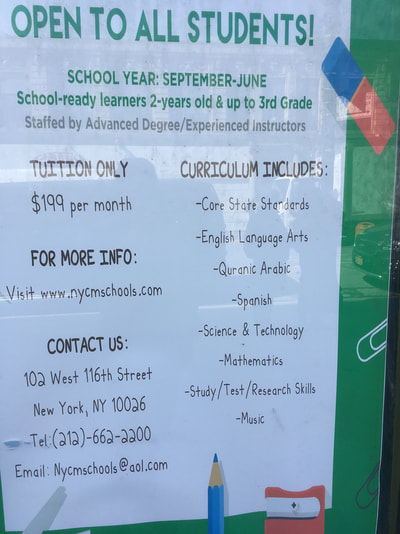 OPEN TO ALL STUDENTS!
SCHOOL YEAR: SEPTEMBER-JUNE
School-ready learners 2-years old & up to 3rd Grade
Staffed by Advanced Degree/Experienced Instructors
TUITION ONLY
$199 per month
FOR MORE INFO:
Visit www.nycmschools.com
CONTACT US:
102 West 116th Street
New York, NY 10026
Tel:(212)-662-2200
Email: Nycmschools@aol.com
CURRICULUM INCLUDES:
-Core State Standards
-English Language Arts
-Quranic Arabic
-Spanish
-Science & Technology
-Mathematics
-Study/Test/Research Skills
-Music